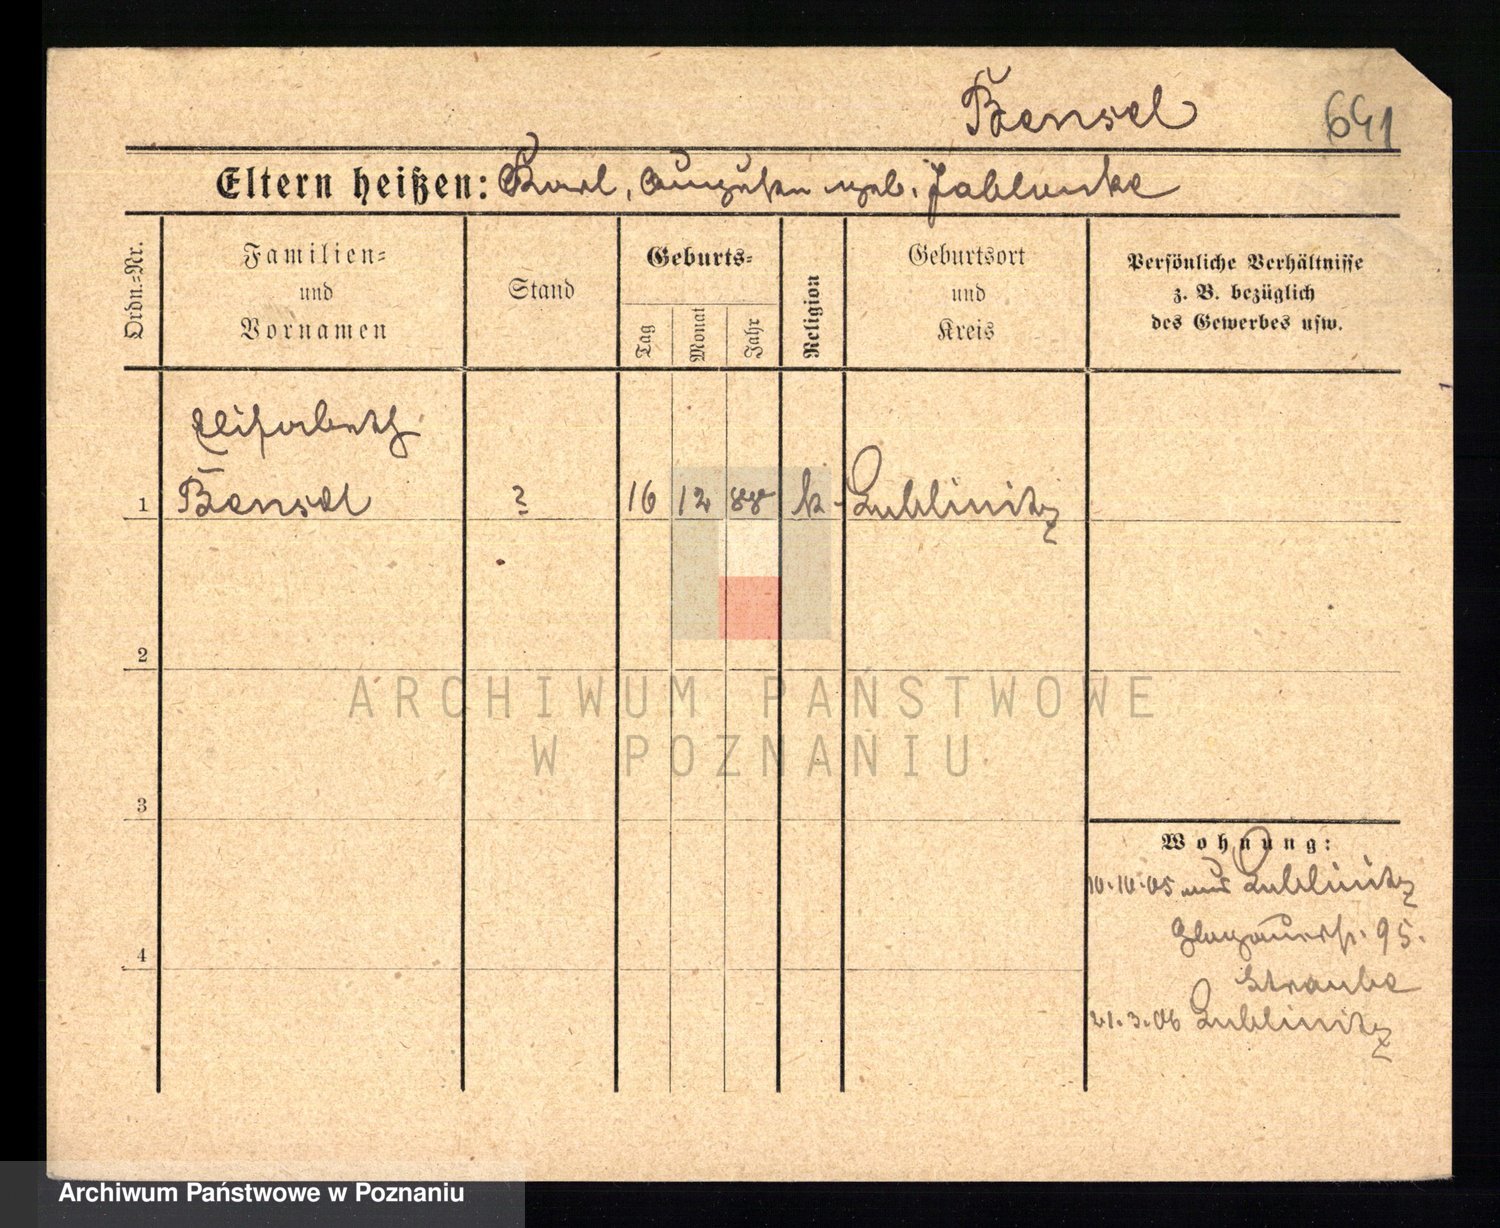 Bensel 641
Eltern heißen: Karl, Auguste geb. Jablonke
Ordn.-Nr.
Familien-
und
Vornamen
Stand
Geburts-
Tag
Monat
Jahr
Religion
Geburtsort
und
Kreis
Persönliche Verhältnisse
z. B. bezüglich
des Gewerbes usw.
Elisabeth
1 Bensel ? 16 12 88 k Lublinitz
2
ARCHIWUM PAŃSTWOWE
W POZNANIU
3
Wohnung:
10.10.05 aus Lublinitz
Glogauerstr. 95.
Straube
4
21.3.06 Lublinitz
Archiwum Państwowe w Poznaniu